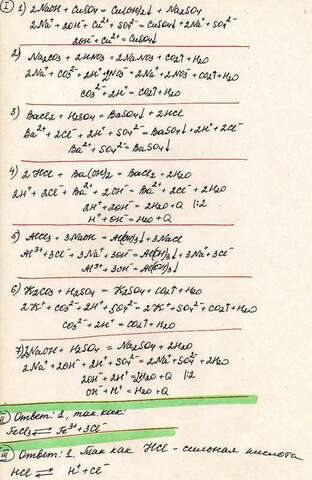 I 1) 2NaOH + CuSO4 = Cu(OH)2↓ + Na2SO4
2Na+ + 2OH- + Cu2+ + SO4 2- = CuSO4↓ + 2Na+ + SO4 2-
2OH- + Cu2+ = CuSO4↓
2) Na2CO3 + 2HNO3 = 2NaNO3 + CO2↑ + H2O
2Na+ + CO3 2- + 2H+ + 2NO3- = 2Na+ + 2NO3- + CO2↑ + H2O
CO3 2- + 2H+ = CO2↑ + H2O
3) BaCl2 + H2SO4 = BaSO4↓ + 2HCl
Ba2+ + 2Cl- + 2H+ + SO4 2- = BaSO4↓ + 2H+ + 2Cl-
Ba2+ + SO4 2- = BaSO4↓
4) 2HCl + Ba(OH)2 = BaCl2 + 2H2O
2H+ + 2Cl- + Ba2+ + 2OH- = Ba2+ + 2Cl- + 2H2O
2H+ + 2OH- = 2H2O + Q |:2
H+ + OH- = H2O + Q
5) AlCl3 + 3NaOH = Al(OH)3↓ + 3NaCl
Al3+ + 3Cl- + 3Na+ + 3OH- = Al(OH)3↓ + 3Na+ + 3Cl-
Al3+ + 3OH- = Al(OH)3↓
6) K2CO3 + H2SO4 = K2SO4 + CO2↑ + H2O
2K+ + CO3 2- + 2H+ + SO4 2- = 2K+ + SO4 2- + CO2↑ + H2O
CO3 2- + 2H+ = CO2↑ + H2O
7) 2NaOH + H2SO4 = Na2SO4 + 2H2O
2Na+ + 2OH- + 2H+ + SO4 2- = 2Na+ + SO4 2- + 2H2O
2OH- + 2H+ = 2H2O + Q |:2
OH- + H+ = H2O + Q
II Ответ: 1, так как:
FeCl3 ⇄ Fe3+ + 3Cl-
III Ответ: 1. Так как HCl - сильная кислота
HCl ⇄ H+ + Cl-